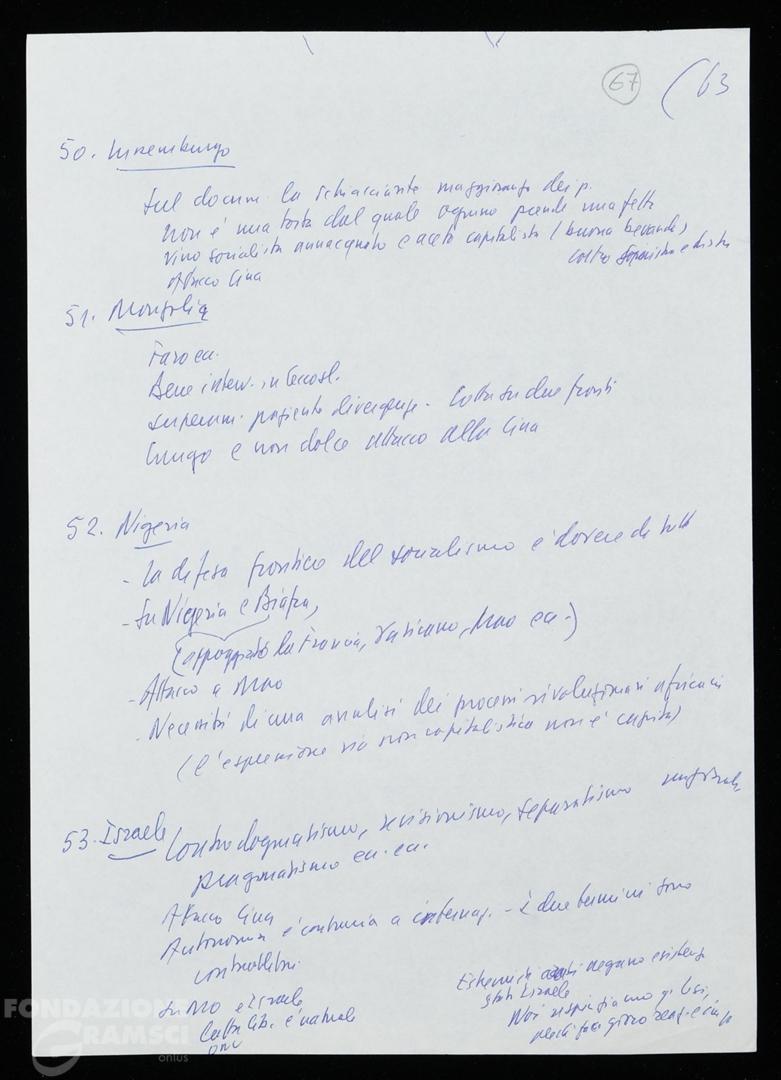 67
(63
50. Lussemburgo
Sul docum. la schiacciante maggioranza dei p.
Non è una torta dal quale ognuno prende una fetta
Vino socialista annacquato e aceto capitalista (buona bevanda)
Attacco Cina
51. Mongolia
Faro ecc.
Bene interv. in Cecosl.
superam. paziente divergenze - Lotta su due fronti
Lungo e non dolce attacco alla Cina
52. Nigeria
- La difesa frontiere del socialismo è dovere di tutti
- Su Nigeria e Biafra,
(appoggiato da Francia, Vaticano, Mao ecc.)
- Attacco a Mao
- Necessità di una analisi dei processi rivoluzionari africani
(l'espressione via non capitalistica non è capita)
53. Israele Contro dogmatismo, revisionismo, separatismo
pragmatismo ecc. ecc.
Attacco Cina
Autonomia è contraria a internaz. - I due termini sono
contraddittori
Su MO e Israele
Lotta lib. è naturale
ONU
Estremisti arabi negano esistenza
stato Israele
Noi respingiamo
FONDAZIONE
GRAMSCI
onlus